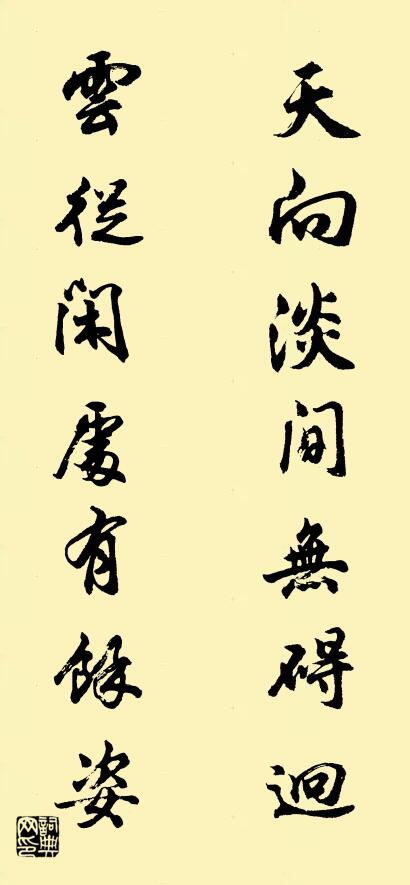 天向淡間無碍迥
雲從閑處有餘姿
詞典网印